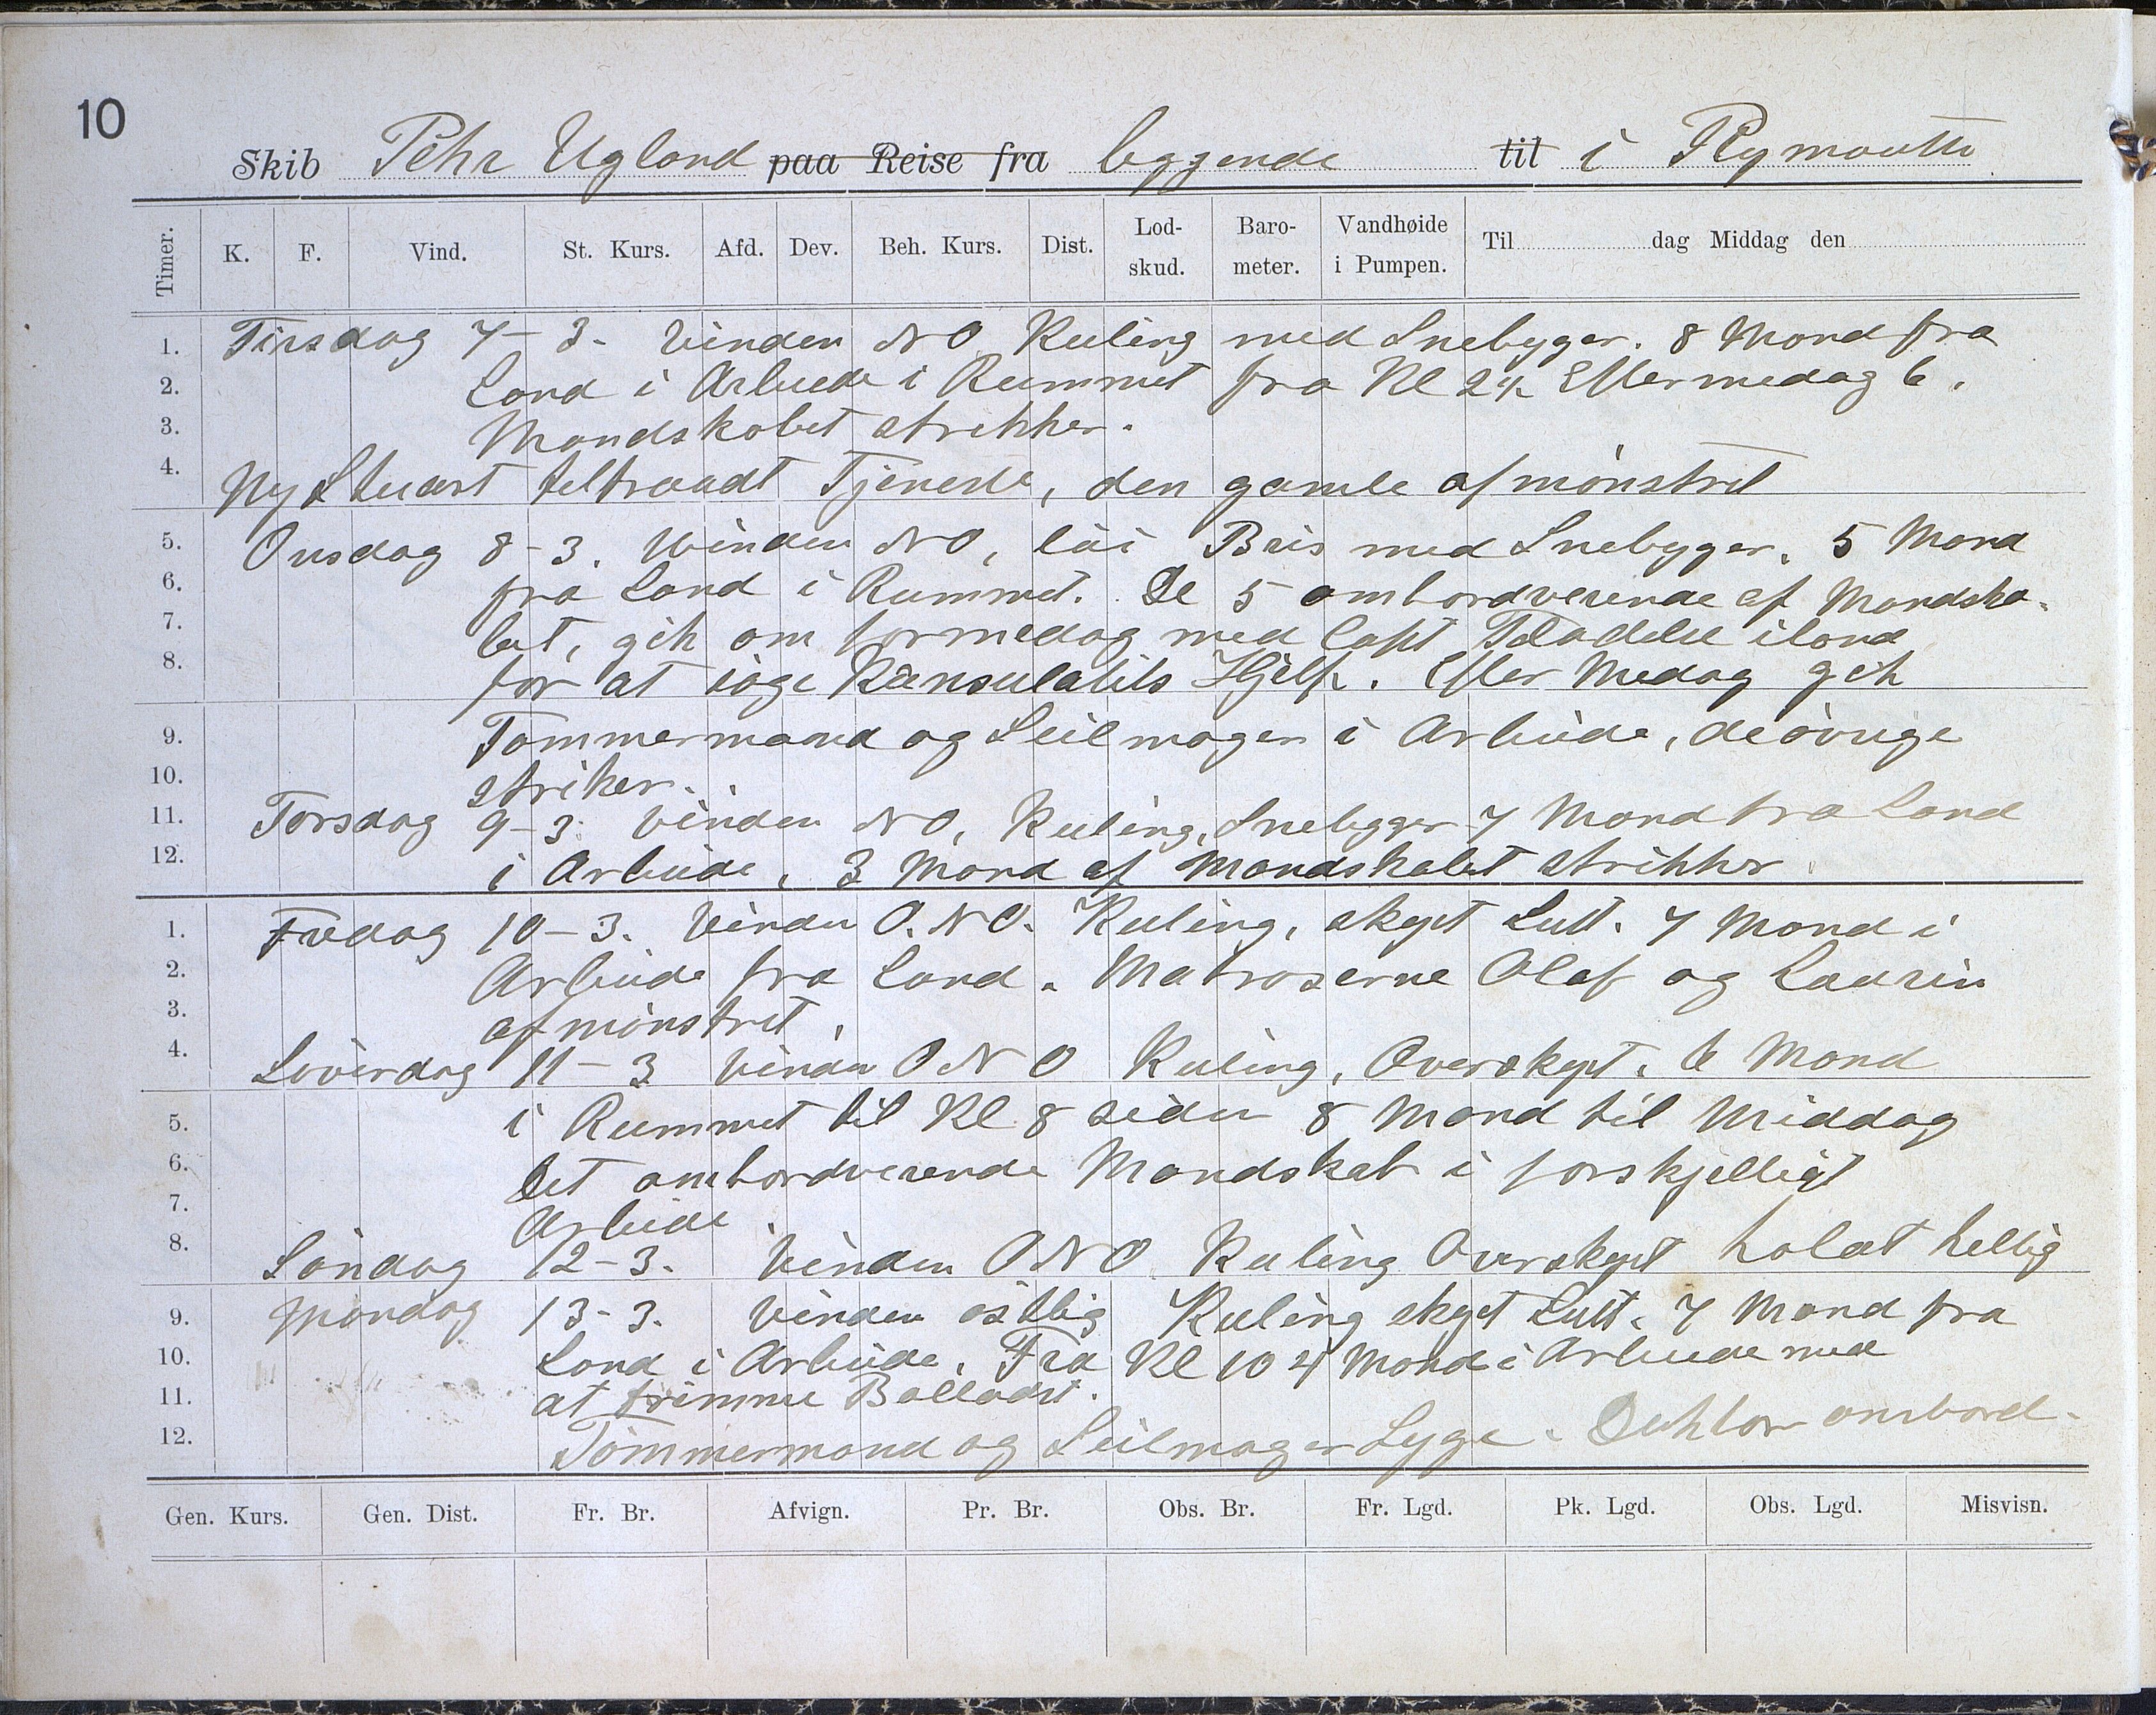 10
Skib Pehr Ugland paa Reise fra leggende til i Plymouth
Timer. K. F. Vind. St. Kurs. Afd. Dev. Beh. Kurs. Dist. Lod-skud. Baro-meter. Vandhøide i Pumpen. Til dag Middag den
1. Tirsdag 7-3. Vinden NO Kuling med Snebyger. 8 Mand fra
2. Land i Arbuede i Rummet fra Kl 2½ Eftermedag 6.
3. Mandskabet strikker.
4. Ny Stuart teltraadt Tjeneste, den gamle afmønstret
5. Onsdag 8-3. Vinden NO, löi Bris med Snebyger. 5 Mand
6. fra Land i Rummet. De 5 ombordverende af Mandska-
7. bet, gik om formedag med Capt Teladelse iland
8. for at söge Kansulatets Hjelp. Efter Medag gik
9. Tømmermand og Seilmager i Arbeide, de övrige
10. striker.
11. Torsdag 9-3. Vinden NO, Kuling, Snebyger 7 Mand fra Land
12. i Arbeide. 3 Mand af Mandskabet strikker.
1. Fredag 10-3. Vinden O.NO. Kuling, skyet Luft. 7 Mand i
2. Arbeide fra Land. Matroserne Olaf og Laurin
3. afmønstret.
4. Löverdag 11-3 Vinden ONO Kuling, Overskyet. 6 Mand
5. i Rummet til Kl 8 siden 8 Mand til Middag
6. Det ombordverende Mandskab i forskjelligt
7. Arbeide.
8. Söndag 12-3. Vinden ONO Kuling Overskyet holdt hellig
9. Mandag 13-3. Vinden östlig Kuling skyet Luft. 7 Mand fra
10. Land i Arbeide. Fra Kl 10 4 Mand i Arbeide med
11. at trimme Balladst.
12. Tömmermand og Seilmager Syge. Doktor ombord.
Gen. Kurs. Gen. Dist. Fr. Br. Afvign. Pr. Br. Obs. Br. Fr. Lgd. Pk. Lgd. Obs. Lgd. Misvisn.